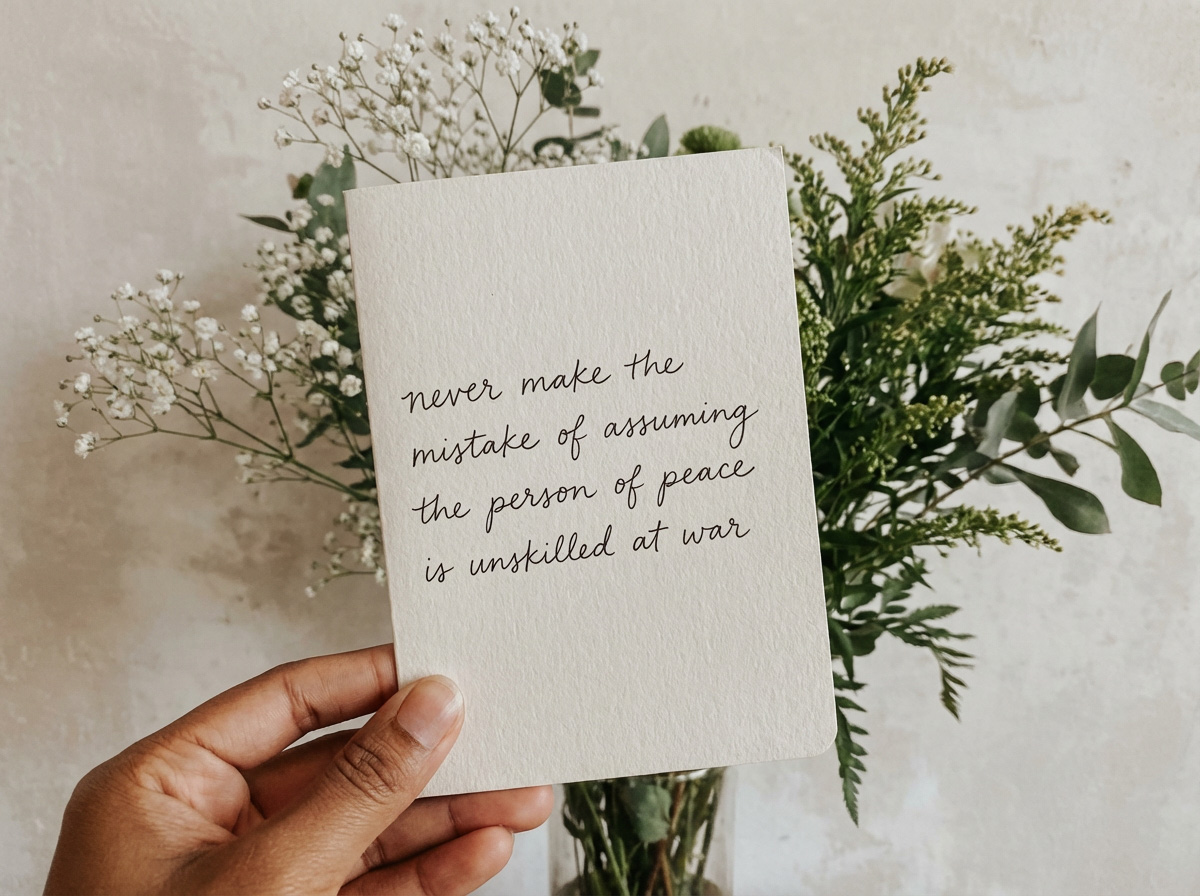 never make the
mistake of assuming
the person of peace
is unskilled at war